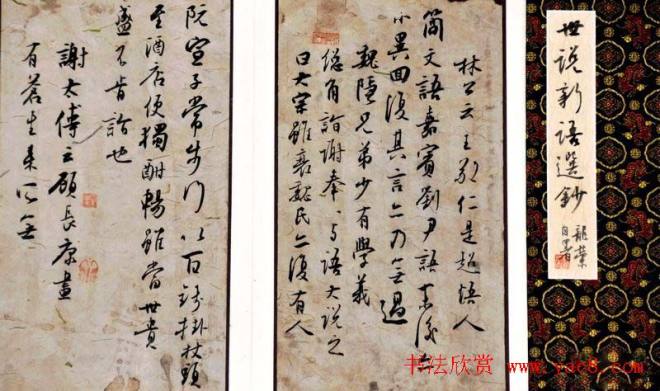 世説新語選鈔
龍榮
自署
林公云王敬仁是超悟人
簡文語嘉賓劉尹語末後亦
小異回復其言亦乃無過
魏隱兄弟少有學義
總角詣謝奉〻与語大説之
曰大宗雖衰魏氏已復有人
阮宣子常步行以百錢掛杖頭
至酒店便獨酣暢雖當世貴
盛不肯詣也
謝太傅云顧長康畫
有蒼生来所無
书法欣赏 www.yac8.com